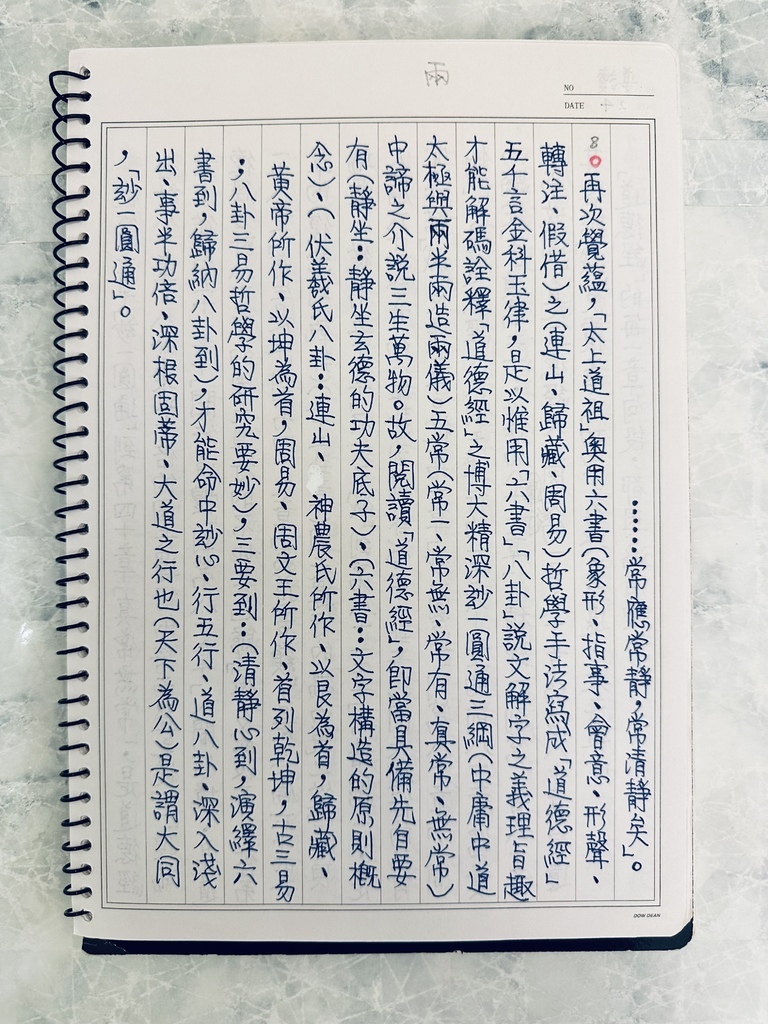 雨
NO
DATE
……常應常靜，常清靜矣」。
8。再次覺蘊，「太上道祖」奧用六書（象形、指事、會意、形聲、
轉注、假借）之（連山、歸藏、周易）哲學手法寫成「道德經」
五千言金科玉律，是以惟用「六書」「八卦」說文解字之義理旨趣
才能解碼詮釋「道德經」之博大精深玅一圓通三綱（中庸中道
太極與兩半兩造兩儀）五常（常一、常無、常有、真常、無常）
中諦之介說三生萬物。故，閱讀「道德經」，即當具備先自要
有（靜坐：靜坐玄德的功夫底子）、（六書：文字構造的原則概
念）、（伏羲氏八卦：連山、神農氏所作、以艮為首，歸藏、
黃帝所作、以坤為首，周易、周文王所作、首列乾坤，古三易
；八卦三易哲學的研究要妙），三要到：（清靜心到，演繹六
書到，歸納八卦到），才能命中玅心、行五行、道八卦、深入淺
出、事半功倍、深根固蒂、大道之行也（天下為公）是謂大同
，「玅一圓通」。
DOW DEAN